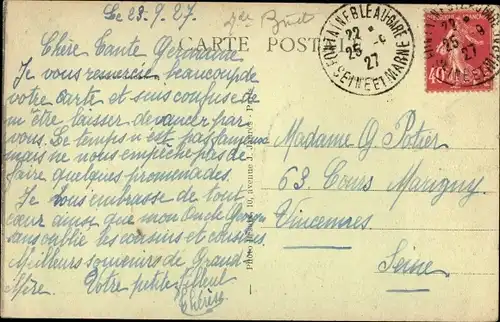 Le 23.9.27
CARTE POSTALE
Chère Tante Germaine
Je vous remercie beaucoup de
votre carte et suis confuse de
m'être laisser devancer par
vous. Le temps n'est pas fameux
mais ne nous empêche pas de
faire quelques promenades.
Je vous embrasse de tout
cœur ainsi que mon Oncle
sans oublié les cousins et cousines
Meilleurs souvenirs de Grand
Mère. Votre petite filleule
Thérèse
FONTAINEBLEAU-GARE
22
25 - 9
27
SEINE ET MARNE
22
25 9
27
40
Madame G. Potier
63. Cours Marigny
Vincennes
Seine